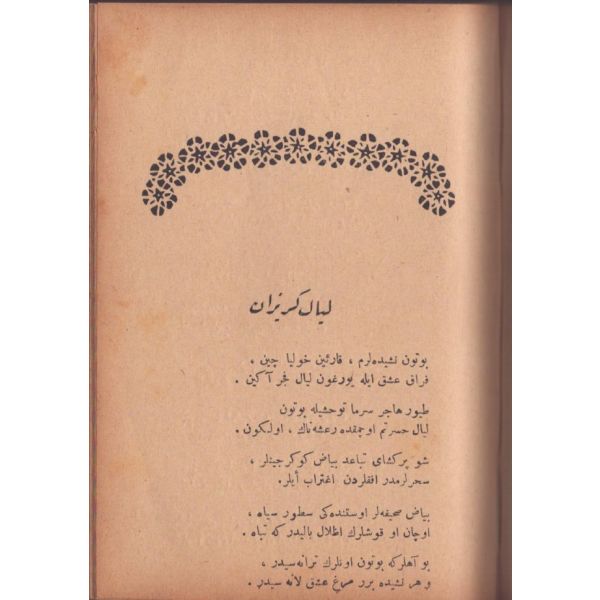 لیال گریزان
بوتون نشیده‌لرم ، قارئین خولیا چین ،
فراق عشق ایله یورغون لیال فجر آکین .
طیور هاجر سرما توحشیله بوتون
لیال حسرتم اوچمقده رعشه‌ناك ، اولنکون .
شو پرکشای تباعد بیاض کوکرجینلر ،
سحرلرمدر افقلردن اغتراب أیلر.
بیاض صحیفه‌لر اوستنده‌کی سطور سیاه ،
اوچان او قوشلرك اظلال بالیدر که تباه .
بو آهلرکه بوتون اونلرك ترانه‌سیدر ،
و هر نشیده برر مرغ عشق لانه سیدر .